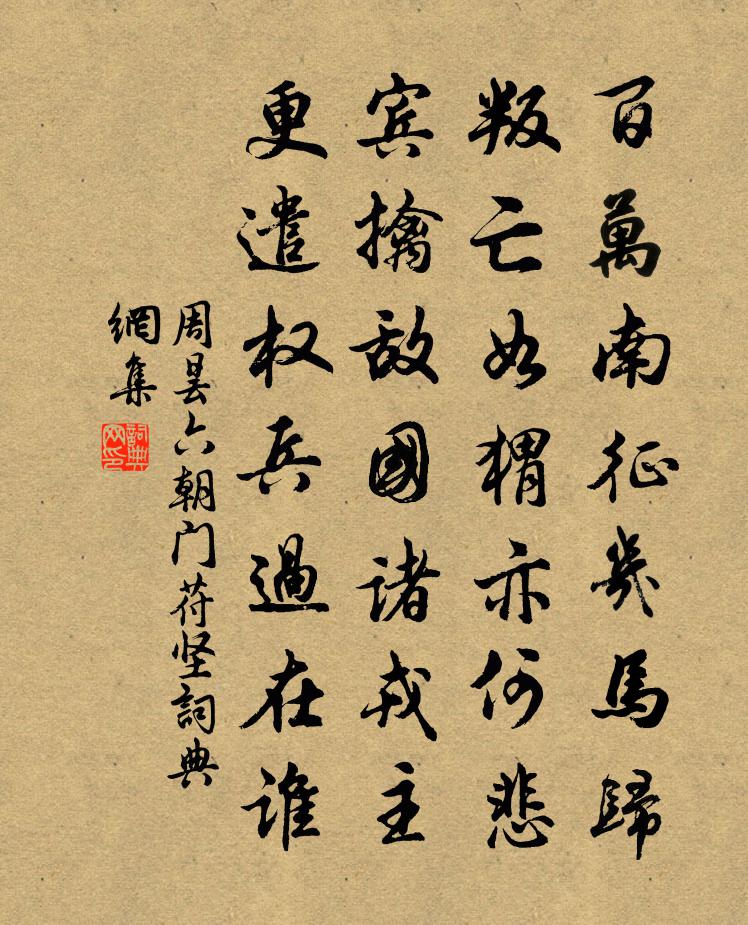 百萬南征幾馬歸
叛亡如猬亦何悲
宾擒敌國諸戎主
更遣权兵過在谁
周昙六朝门苻坚詞典
網集
詞典
网印